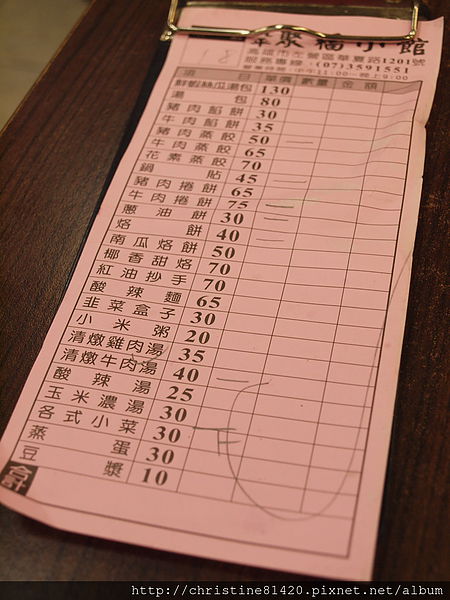 聚福小館
高雄市左營區華夏路1201號
服務專線：(07)3591551
營業時間：中午11:00~晚上9:00
項 目 單價 數量 金額
鮮蝦絲瓜湯包 130
湯包 80
豬肉餡餅 30
牛肉餡餅 35
豬肉蒸餃 50
牛肉蒸餃 65
花素蒸餃 70
鍋貼 45
豬肉捲餅 65
牛肉捲餅 75
蔥油餅 30
烙餅 40
南瓜烙餅 50
椰香甜烙 70
紅油抄手 70
酸辣麵 65
韭菜盒子 30
小米粥 20
清燉雞肉湯 35
清燉牛肉湯 40
酸辣湯 25
玉米濃湯 30
各式小菜 30
蒸蛋 30
豆漿 10
合計
http://christine81420.pixnet.net/album